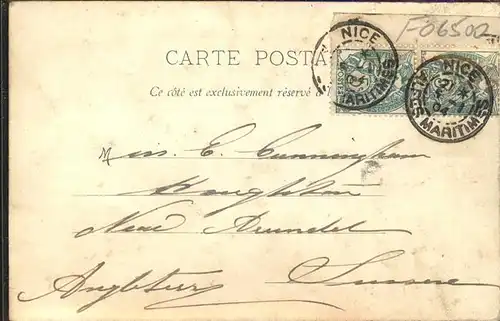 F-06500
NICE
ALPES MARITIMES
NICE
ALPES MARITIMES
CARTE POSTA
Ce côté est exclusivement réservé à
Miss. E. Cunningham
Houghton
Near Arundel
Sussex
Angleterre